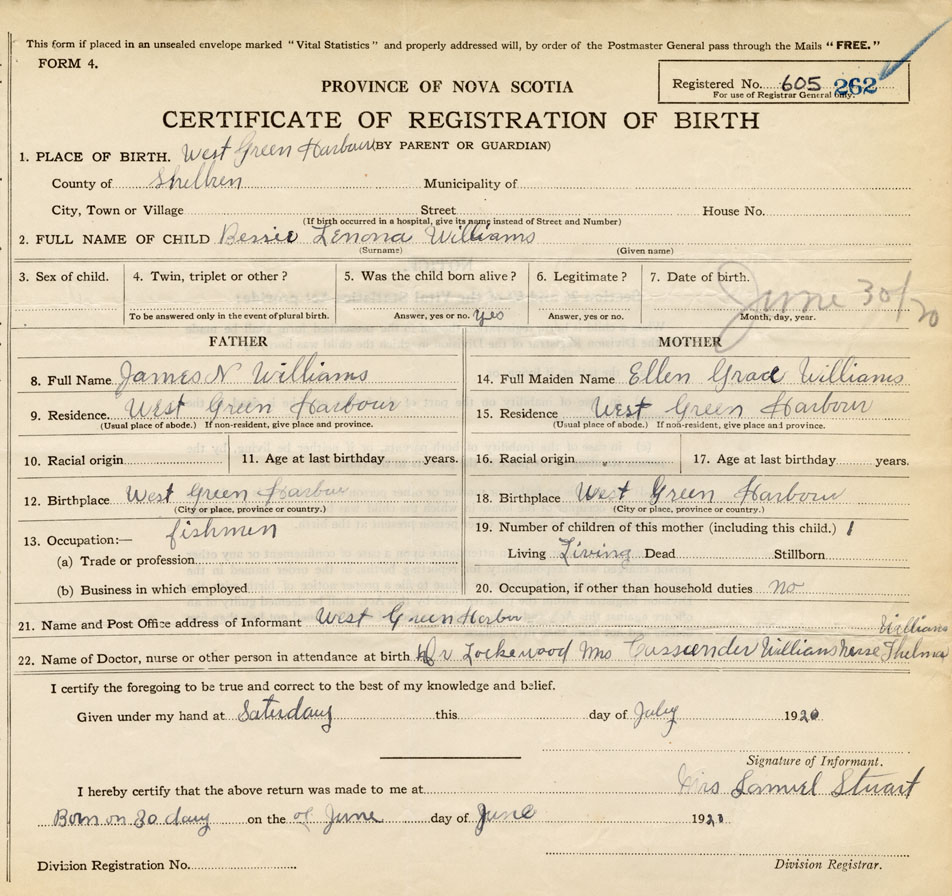 This form if placed in an unsealed envelope marked "Vital Statistics" and properly addressed will, by order of the Postmaster General pass through the Mails "FREE."
FORM 4.
Registered No. 605 262
For use of Registrar General only.
PROVINCE OF NOVA SCOTIA
CERTIFICATE OF REGISTRATION OF BIRTH
(BY PARENT OR GUARDIAN)
1. PLACE OF BIRTH. West Green Harbour
County of Shelben Municipality of
City, Town or Village Street House No.
(If birth occurred in a hospital, give its name instead of Street and Number)
2. FULL NAME OF CHILD Bessie Lenona Williams
(Surname) (Given name)
3. Sex of child. 4. Twin, triplet or other? 5. Was the child born alive? 6. Legitimate? 7. Date of birth. June 30/20
To be answered only in the event of plural birth. Answer, yes or no. yes Answer, yes or no. Month, day, year.
FATHER MOTHER
8. Full Name James N Williams 14. Full Maiden Name Ellen Grace Williams
9. Residence. West Green Harbour 15. Residence West Green Harbour
(Usual place of abode.) If non-resident, give place and province. (Usual place of abode.) If non-resident, give place and province.
10. Racial origin 11. Age at last birthday years. 16. Racial origin 17. Age at last birthday years.
12. Birthplace West Green Harbour 18. Birthplace West Green Harbour
(City or place, province or country.) (City or place, province or country.)
13. Occupation:— fishmen 19. Number of children of this mother (including this child.) 1
(a) Trade or profession Living Living Dead Stillborn
(b) Business in which employed 20. Occupation, if other than household duties no
21. Name and Post Office address of Informant West Green Harbor
Williams
22. Name of Doctor, nurse or other person in attendance at birth Dr Lockewood Mrs Williams nurse Thelma
I certify the foregoing to be true and correct to the best of my knowledge and belief.
Given under my hand at Saturday this day of July 1920
Signature of Informant.
Mrs Samuel Stuart
I hereby certify that the above return was made to me at
Born on 30 day on the of June day of June 192
Division Registration No. Division Registrar.